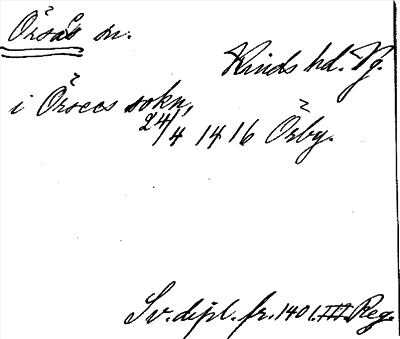 Örsås sn.
Kinds hd. Vg.
i Örsees sokn,
24/4 1416 Örby.
Sv. dipl. fr. 1401. III. Reg.